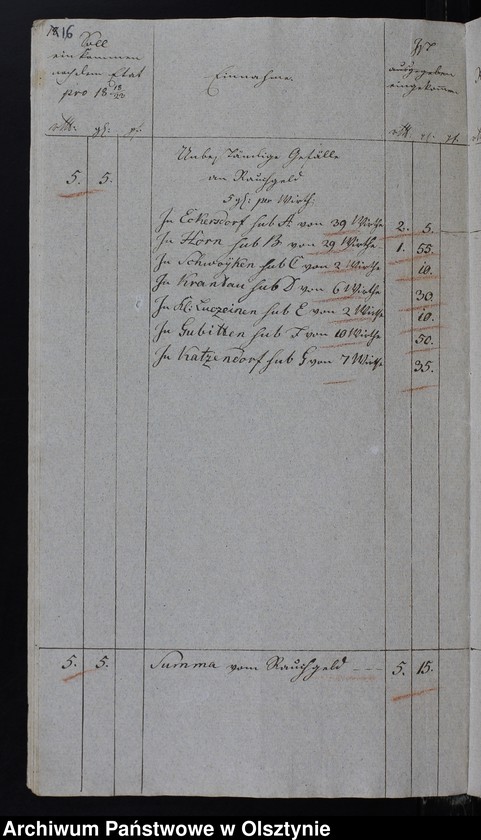 16
Soll
einkommen
nach dem Etat
pro 18 19/20
Einnahme.
Ist
ausgegeben
eingekommen
rtl. gl: pf.
rtl. gl: pf.
Unbeständige Gefälle
5. 5. an Rauchgeld
5 gl: pr Wirth:
In Eckersdorf sub A von 39 Wirthe 2. 5.
In Horn sub B von 29 Wirthe 1. 55.
In Schwoyken sub C von 2 Wirthe 10.
In Krantau sub D von 6 Wirthe 30.
In Kl: Luczeinen sub E von 2 Wirthe 10.
In Gubitten sub F von 10 Wirthe 50.
In Katzendorf sub G von 7 Wirthe 35.
5. 5. Summa vom Rauchgeld --- 5. 15.
Archiwum Państwowe w Olsztynie